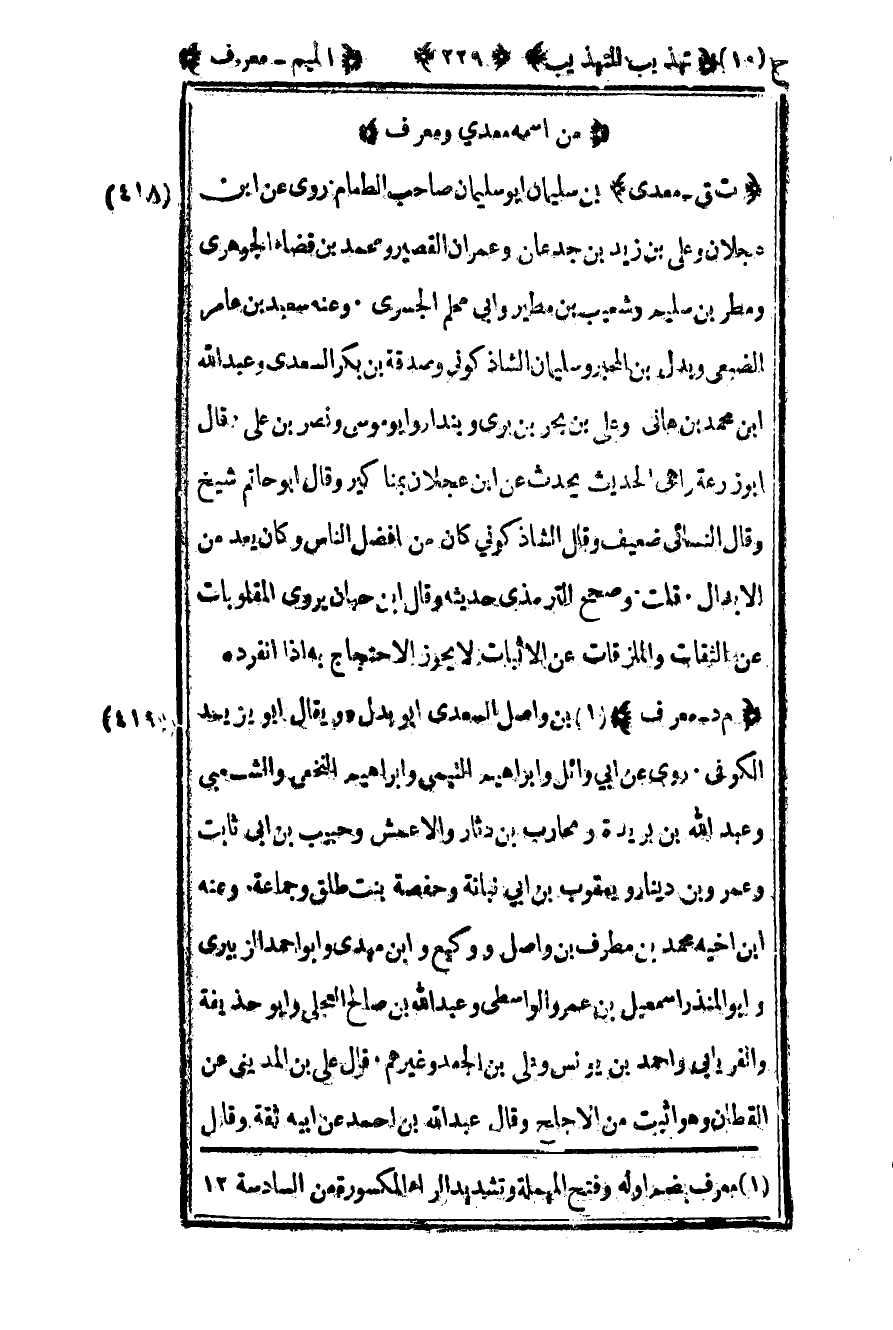 ج (١٠) ﴿ تهذيب التهذيب ﴾ ﴿ ٢٢٩ ﴾ ﴿ الميم - معروف ﴾
﴿ من اسمه معدي ومعرف ﴾
(٤١٨) ﴿ ت ق - معدى ﴾ بن سليمان ابو سليمان صاحب الطعام روى عن ابن
عجلان وعلى بن زيد بن جدعان وعمران القصير ومحمد بن قضاء الجوهرى
ومطر بن سليم وشعيب بن مطير وابي محلم الجسرى ٠ وعنه سعيد بن عامر
الضبعى وبدل بن المحبر وسليمان الشاذ كونى وصدقة بن بكر السعدى وعبدالله
ابن محمد بن هانى وعلى بن بحر بن برى وبندار وابو موسى ونصر بن على ٠ قال
ابو زرعة واهى الحديث يحدث عن ابن عجلان بمناكير وقال ابو حاتم شيخ
وقال النسائى ضعيف وقال الشاذ كوني كان من افضل الناس وكان يعد من
الابدال ٠ قلت ٠ وصحح الترمذى حديثه وقال ابن حبان يروى المقلوبات
عن الثقات والملزقات عن الاثبات لا يجوز الاحتجاج به اذا انفرد ٠
(٤١٩) ﴿ م د - معرف ﴾ (١) بن واصل السعدى ابو بدل ويقال ابو يزيد
الكوفى ٠ روى عن ابي وائل وابراهيم التيمى وابراهيم النخعى والشعبى
وعبد الله بن بريدة ومحارب بن دثار والاعمش وحبيب بن ابى ثابت
وعمرو بن دينار ويعقوب بن ابي نباتة وحفصة بنت طلق وجماعة ٠ وعنه
ابن اخيه محمد بن مطرف بن واصل ووكيع وابن مهدى وابو احمد الزبيرى
وابو المنذر اسمعيل بن عمرو الواسطى وعبدالله بن صالح العجلى وابو حذيفة
والفريابى واحمد بن يونس وعلى بن الجعد وغيرهم ٠ قال على بن المدينى عن
القطان وهو اثبت من الاجلح وقال عبدالله بن احمد عن ابيه ثقة وقال
(١) معرف بضم اوله وفتح المهملة وتشديد الراء المكسورة من السادسة ١٢